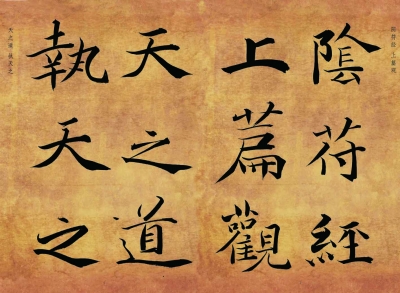 陰符經
上篇觀
天之道
執天之
陰符經 上篇觀
天之道 執天之